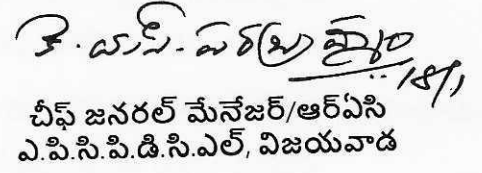 కె. యస్. పరబ్రహ్మం
18/1
చీఫ్ జనరల్ మేనేజర్/ఆర్ఏసి
ఎ.పి.సి.పి.డి.సి.ఎల్, విజయవాడ